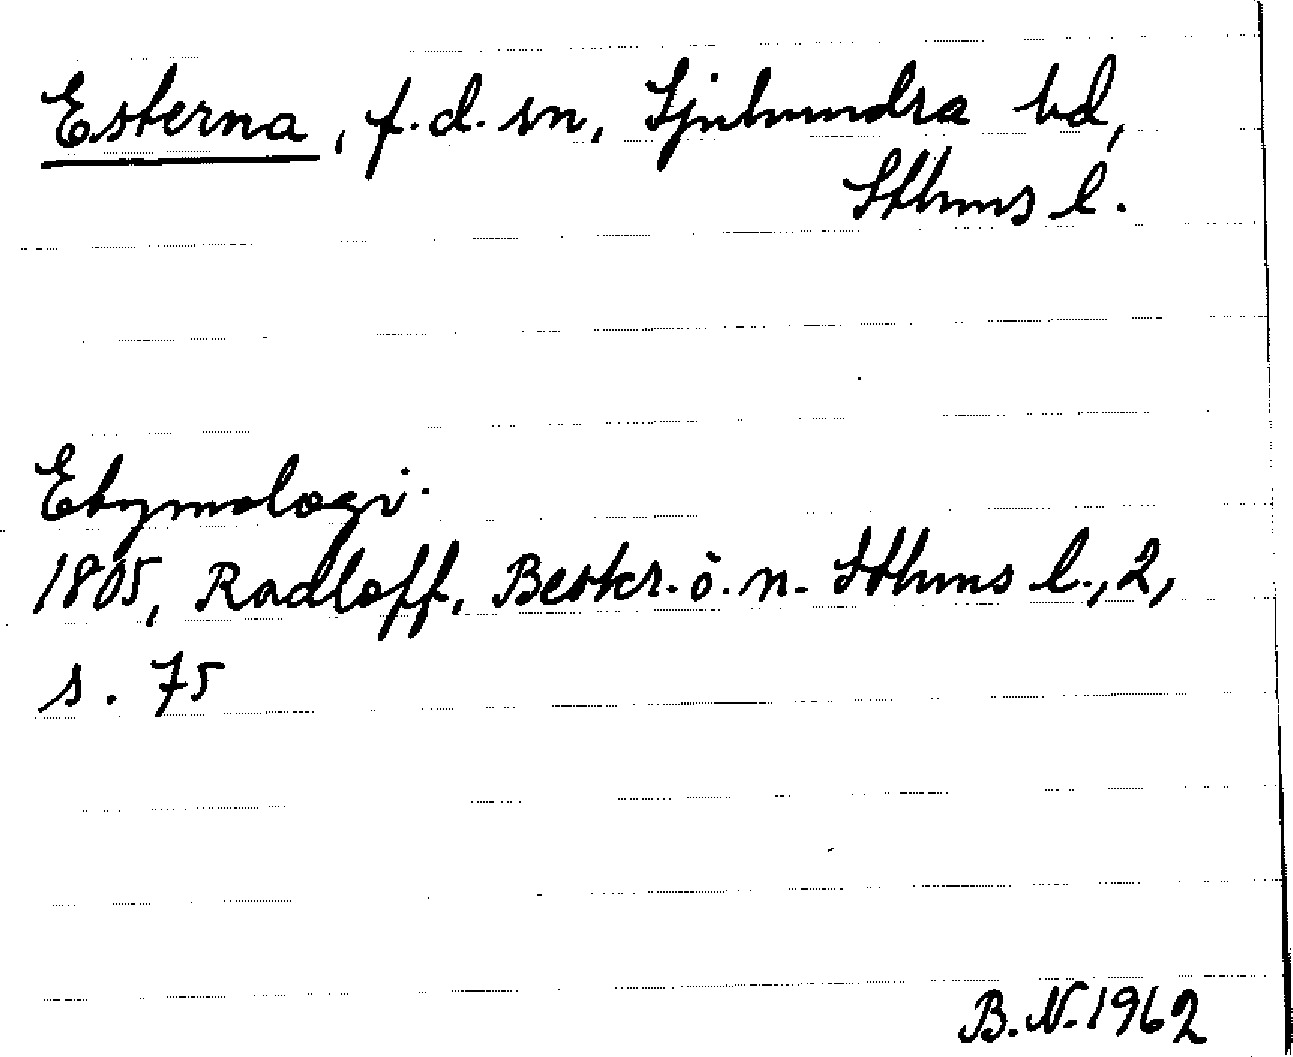 Esterna, f.d. sn, Sjuhundra hd,
Sthms l.
Etymologi.
1805, Radloff, Beskr. ö. n. Sthms l., 2,
s. 75
B.N. 1962